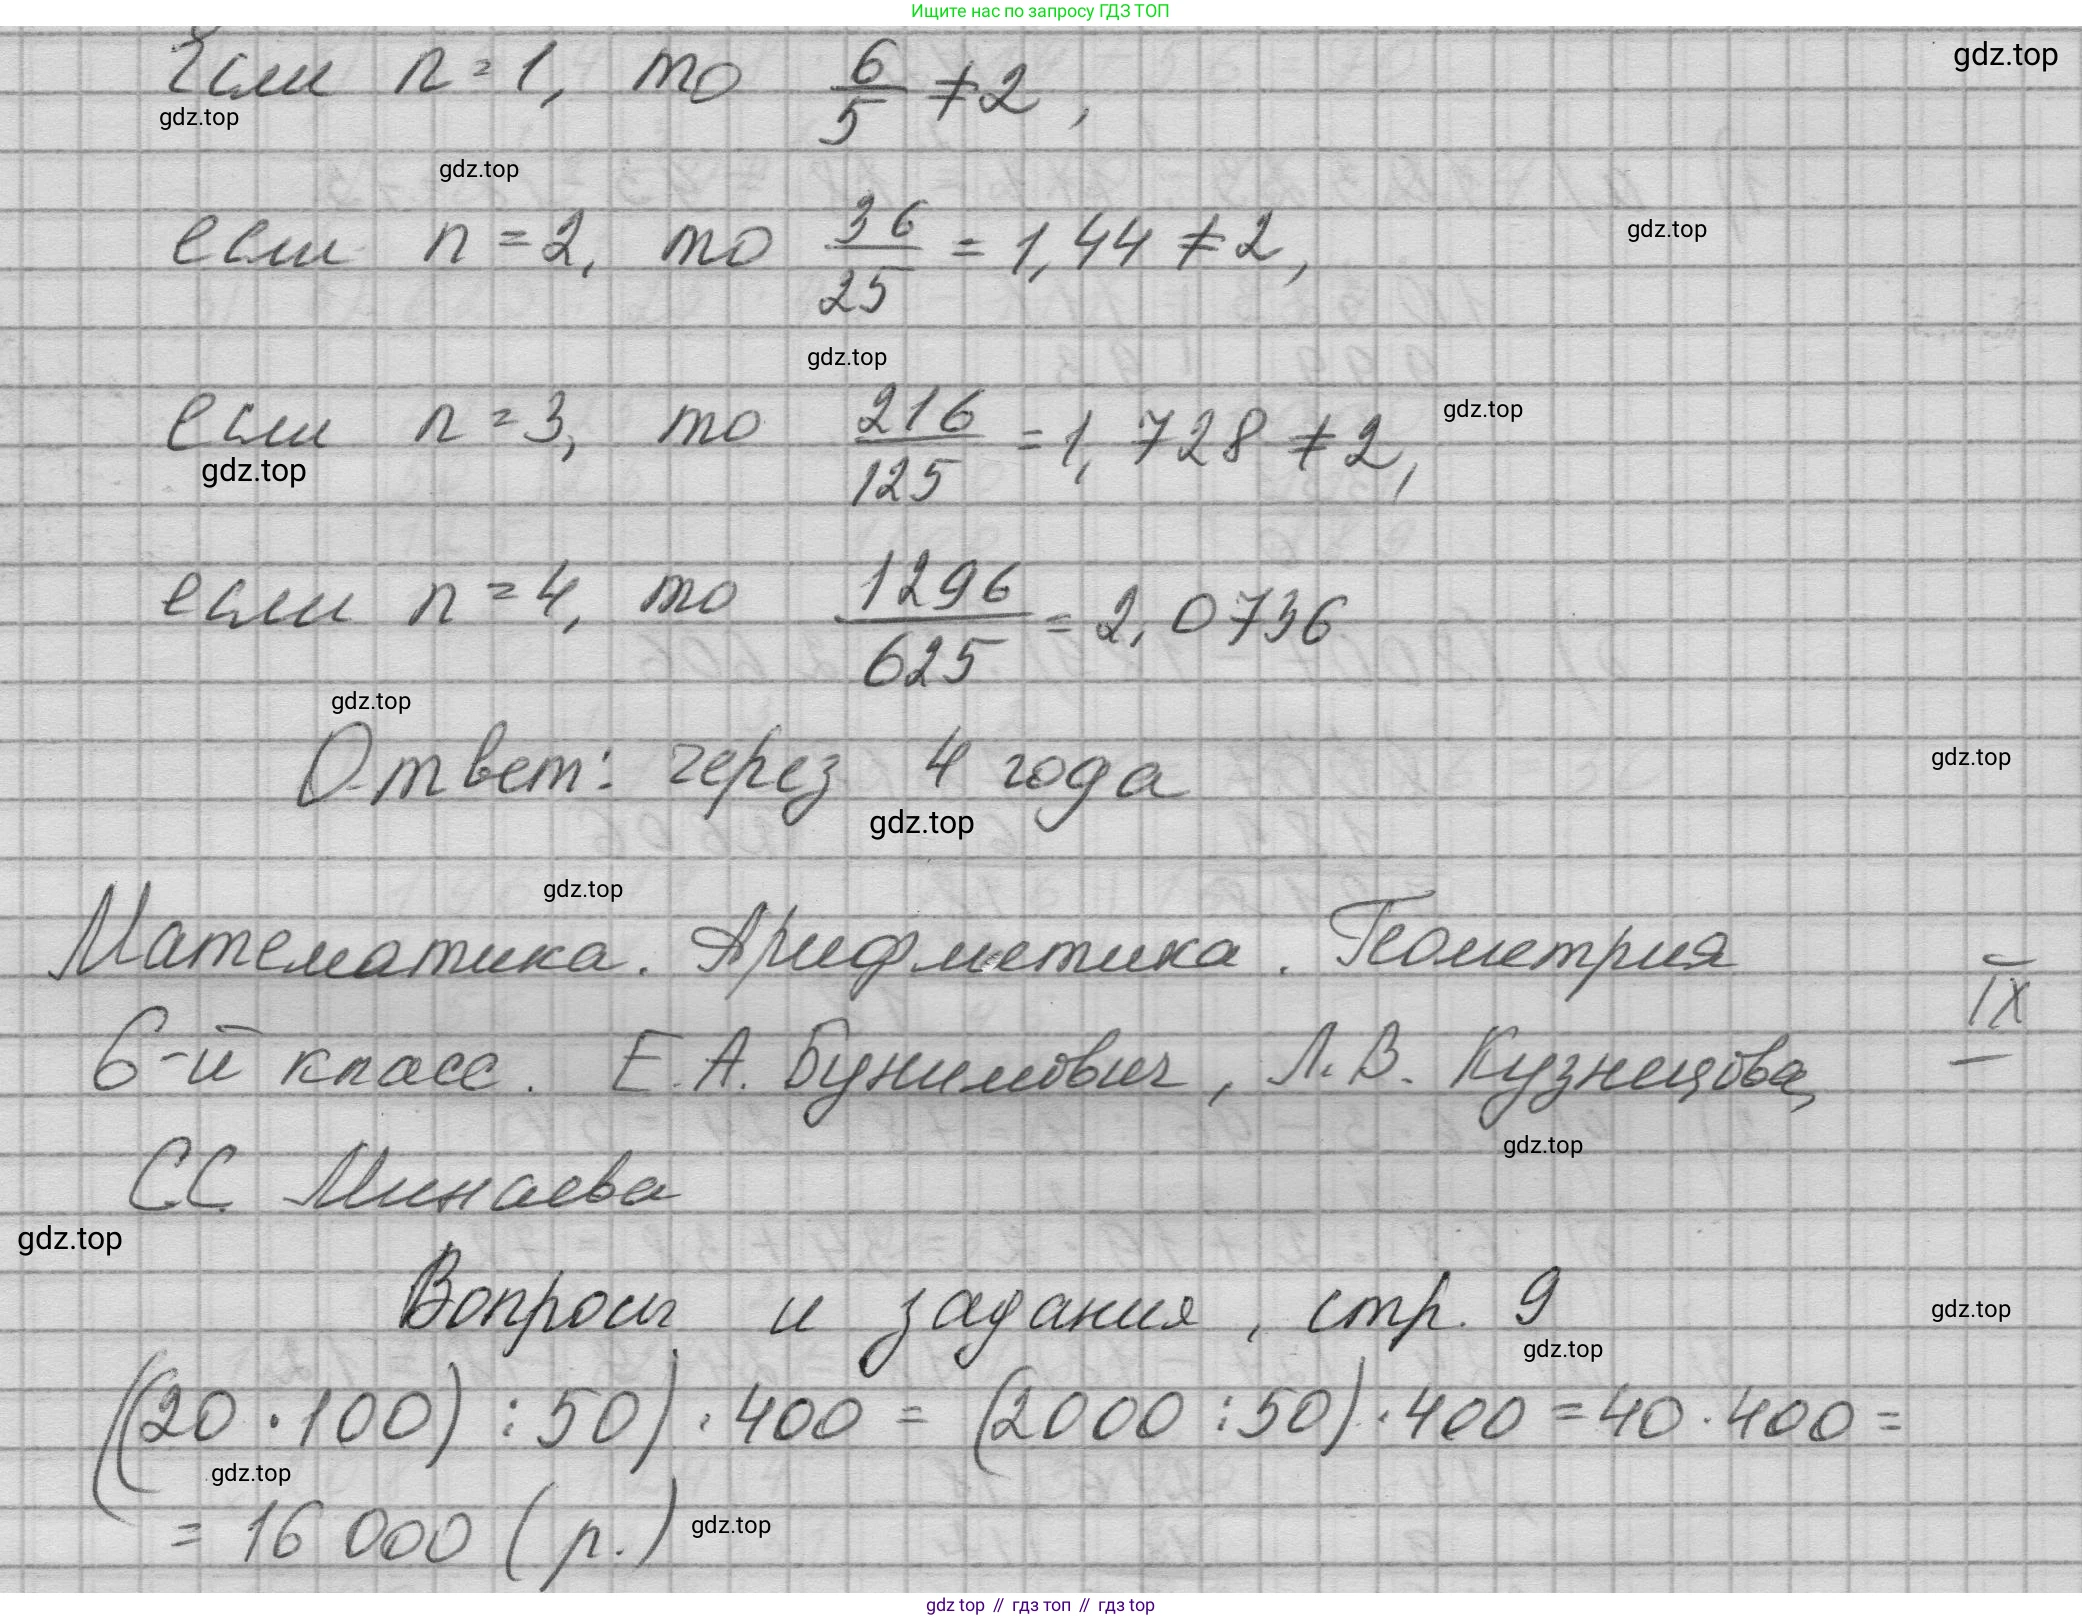 Ищите нас по запросу ГДЗ ТОП
gdz.top
Если n=1, то 6/5 ≠2,
gdz.top
gdz.top
если n=2, то 36/25 = 1,44 ≠2,
gdz.top
gdz.top
если n=3, то 216/125 =1,728 ≠2,
gdz.top
gdz.top
если n=4, то 1296/625 = 2,0736
gdz.top
Ответ: через 4 года
gdz.top
gdz.top
gdz.top
Математика. Арифметика. Геометрия
IX
6-й класс. Е.А. Бунимович, Л.В. Кузнецова,
gdz.top
С.С. Минаева
gdz.top
Вопросы и задания, стр. 9
gdz.top
gdz.top
((20·100):50)·400 = (2000:50)·400=40·400=
gdz.top
= 16 000 (р.)
gdz.top
gdz top // гдз топ // гдз top